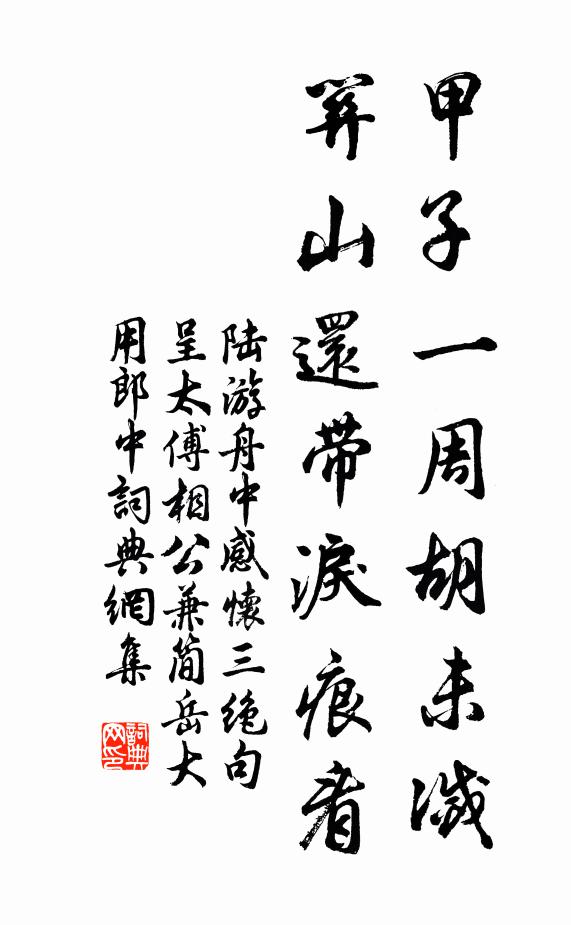 甲子一周胡未滅
關山還帶淚痕看
陸游舟中感懷三絶句
呈太傅相公兼簡岳大
用郎中詞典網集
詞典
网印